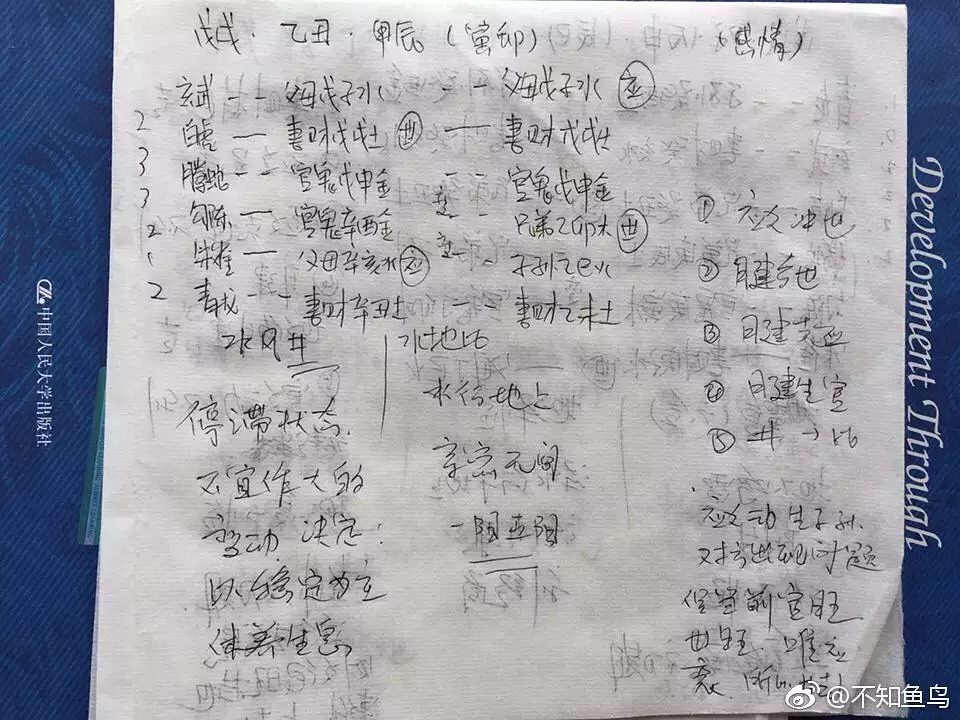 戊戌．乙丑．甲辰（寅卯）（感情）
玄武 -- 父母戊子水 -- 父母戊子水 应
2 白虎 — 妻财戊戌土 世 — 妻财戊戌土
3 腾蛇 -- 官鬼戊申金 -- 官鬼戊申金
3 勾陈 — 官鬼辛酉金 -- 兄弟乙卯木 世
2 朱雀 — 父母辛亥水 应 -- 子孙乙巳火
2 青龙 -- 妻财辛丑土 -- 妻财乙未土
水风井
水地比
停滞状态
不宜作大的
变动 决定：
以稳定为主
休养生息
水行地上
亲密无间
一阳五阴
① 应爻冲世
② 日建合世
③ 日建克应
④ 日建生官
⑤ 井→比
应爻动生子孙
对方出现问题
世旺 唯应
衰
中国人民大学出版社
Development Through
@不知鱼鸟